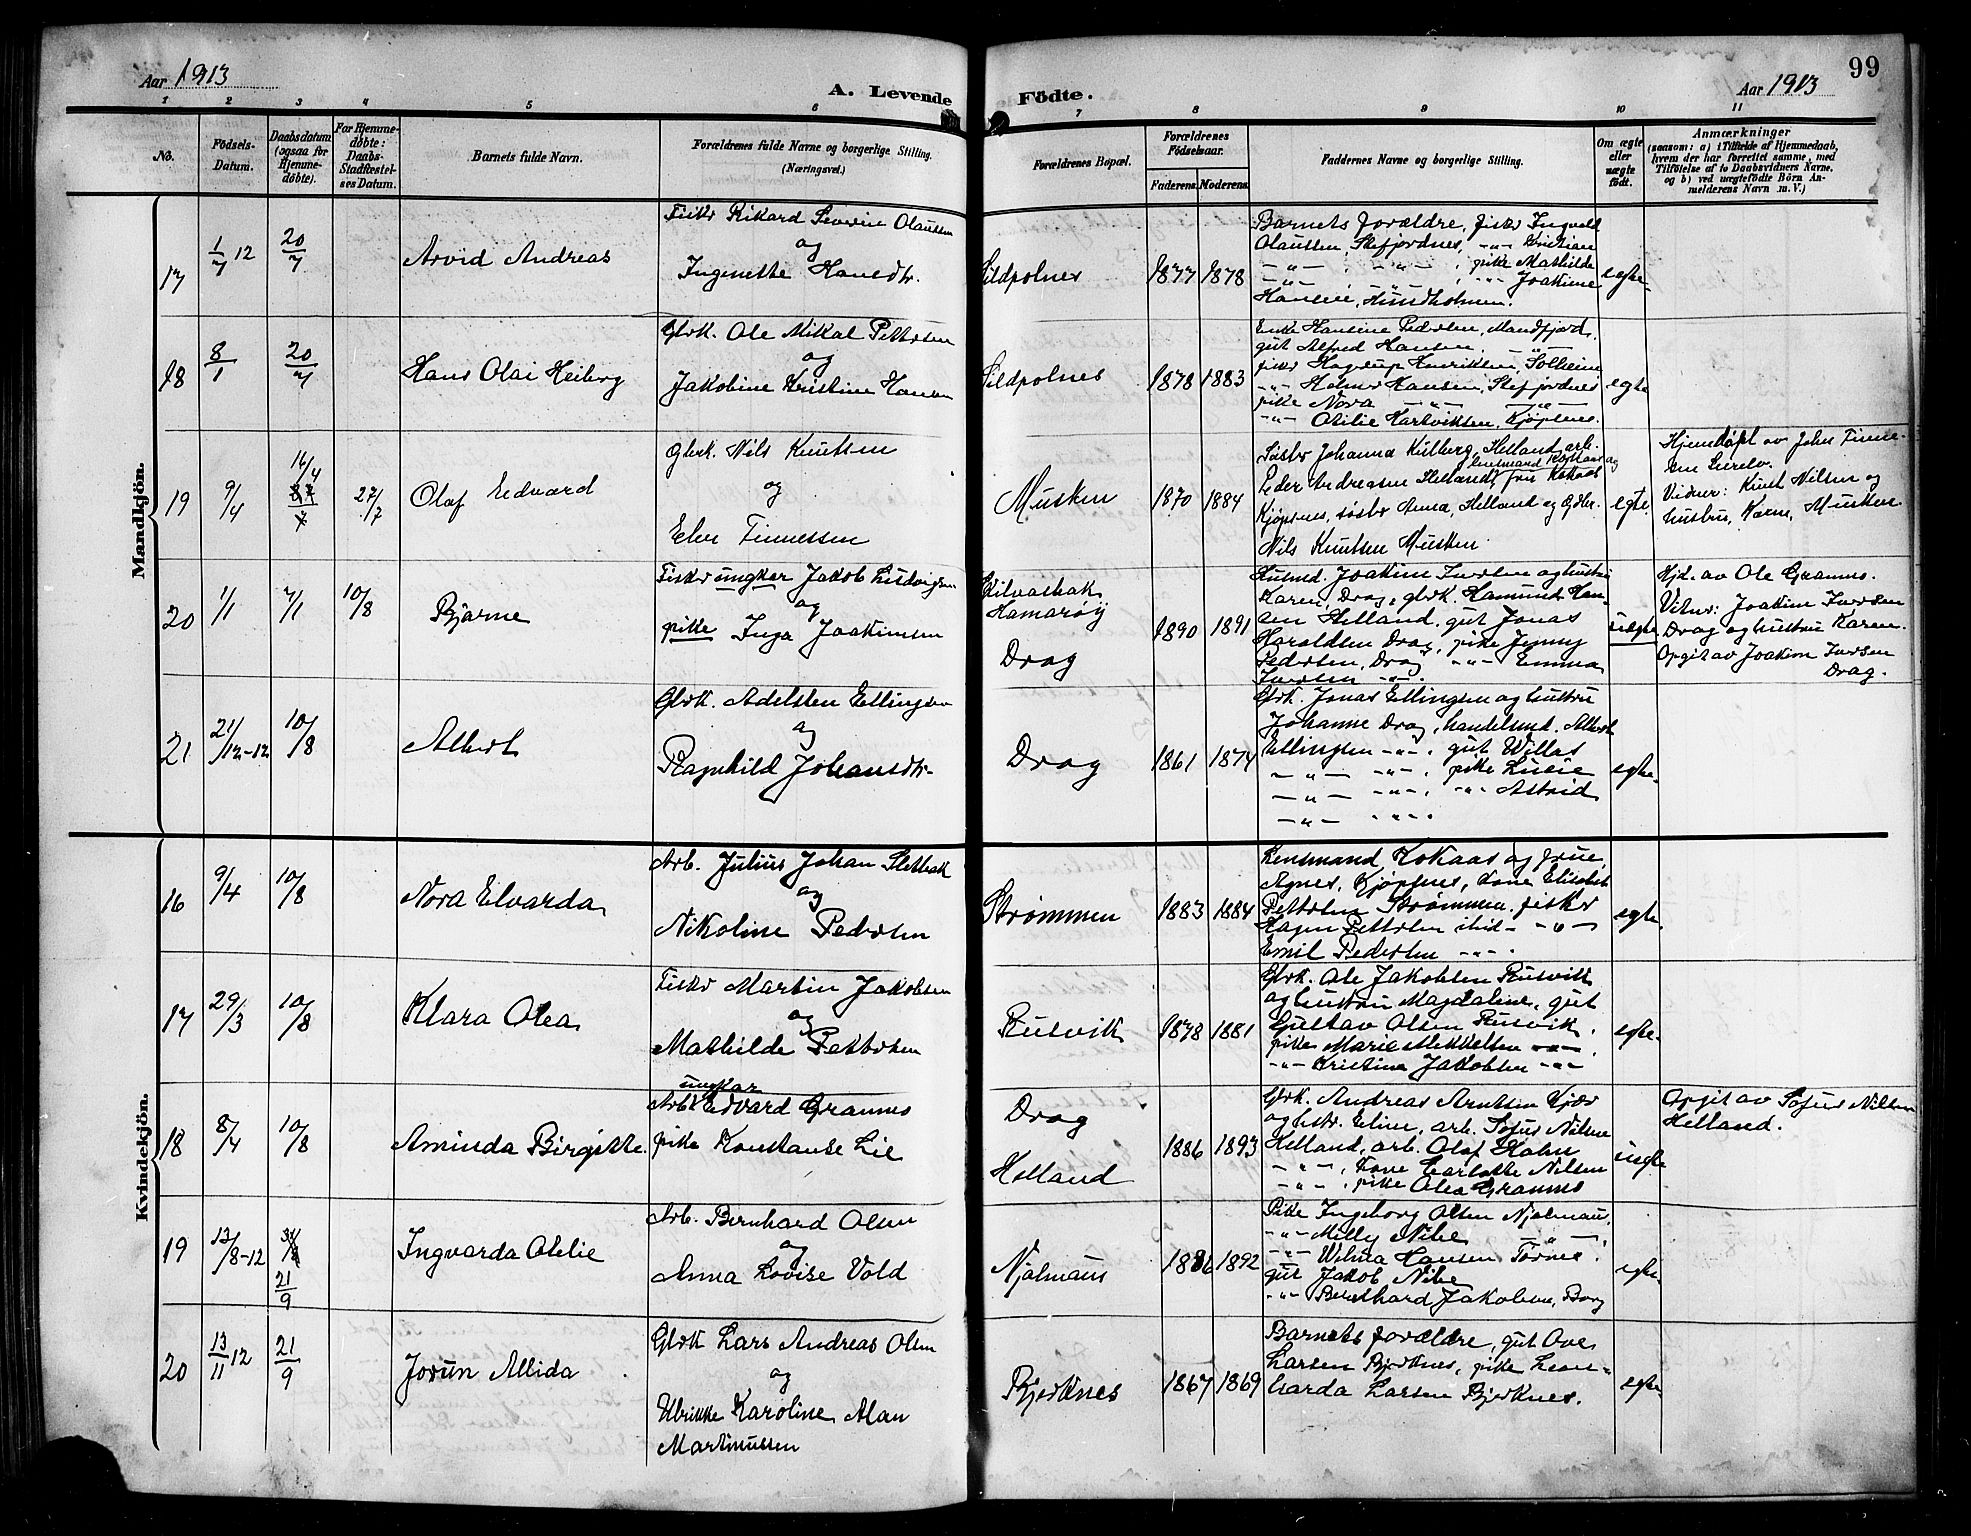 Aar 1913
A. Levende Födte.
Aar 1913
99
1 2 3 4 5 6 7 8 9 10 11
No.
Födsels-
Datum.
Daabsdatum
(ogsaa for
Hjemme-
döbte).
For Hjemme-
döbte:
Daabs-
Stadfæstel-
ses Datum.
Barnets fulde Navn.
Forældrenes fulde Navne og borgerlige Stilling.
(Næringsvei.)
Forældrenes Bopæl.
Forældrenes
Födselsaar.
Faderens. Moderens.
Faddernes Navne og borgerlige Stilling.
Om ægte
eller
uægte
födt.
Anmærkninger
(saasom: a) i Tilfælde af Hjemmedaab,
hvem der har forrettet samme, med
Tilföielse af to Daabsvidners Navne,
og b) ved uægtefödte Börn An-
melderens Navn m. V.)
Mandkjön.
17
1/7 12
20/7
Arvid Andreas
Fisker Rikard Severin Olaussen
og
Ingenette Hansdtr.
Sildpolnes
1877 1878
Barnets forældre, fisker Ingvald
Olaussen, Stefjordnes, -"- Kristian
-"- , -"- , pike Mathilde
-"- , -"- , -"- Joakime
Hansen, Hundholmen.
egte.
18
8/1
20/7
Hans Olai Heiberg
Gbrk. Ole Mikal Pettersen
og
Jakobine Kristine Hansen
Sildpolnes
1878 1883
Enke Hansine Pedersen, Mandfjord,
gut Alfred Hansen, -"-
fisker Hagerup Henriksen, Solheim
-"- Helmer Hansen, Stefjordnes
pike Nora -"- -"-
-"- Otilie Hartviksen, Kjøpsnes.
egte
19
9/4
16/4
27/7
Olaf Edvard
gbrk. Nils Knutsen
og
Ellen Finnessen
Musken
1870 1884
Søster Johanna Kulberg, Helland, arb.
Peder Andreasen Helland, lensmand Kokaas og
frue Kokaas
Kjøpsnes, søster Anna, Helland og Gbkr.
Nils Knutsen Musken.
egte.
Hjemdøpt av John Finne-
sen
Vidner: Knut Nilsen og
hustru, Karen, Musken.
20
1/1
7/1
10/8
Bjarne
Fisker ungkar Jakob Ludvigsen
og
pike Inga Joakimsen
Hamarøy
Drag
1890 1891
Husmd. Joakim Iversen og hustru
Karen, Drag, gbrk. Hamund Han-
sen Helland, gut Jonas
Haroldsen Drag, pike Jenny
Pedersen, Drag -"- Emma
Iversen -"-.
uegte
Hjd. av Ole Grannes.
Vitner: Joakim Iversen
Drag og hustru Karen.
Opgit av Joakim Iversen
Drag.
21
21/12-12
10/8
Albert
Gbrk. Adelsten Ellingsen
og
Ragnhild Johansdtr.
Drag
1861 1874
Gbrk. Jonas Ellingsen og hustru
Johanne Drag, handelsmd. Albert
Ellingsen -"-, gut Willas
-"- -"-, pike Lucie
-"- -"-, -"- Astrid
-"- -"-.
egte.
Kvindekjön.
16
9/4
10/8
Nora Elvarda
Arb. Julius Johan Sletbak
og
Nikoline Pedersen
Strømmen
1883 1884
Lensmand Kokaas og frue,
Agnes, Kjøpsnes, kone Elisabet
Pettersen Strømmen, fisker
Hagen Pettersen ibid -"-
Emil Pedersen -"-.
egte.
17
29/3
10/8
Klara Olea
Fisker Martin Jakobsen
og
Mathilde Pettersen
Rusvik
1878 1881
Gbrk. Ole Jakobsen Rusvik
og hustru Magdaline, gut
Gustav Olsen Rusvik,
pike Marie Mikkelsen -"-,
-"- Kristine Jakobsen -"-
egte.
18
8/4
10/8
Aminda Birgitte
ungkar
Arb. Edvard Grannes
pike Konstanse Lie
Drag
Helland
1886 1893
Gbrk. Andreas Arntsen Kjær
og hstr. Eline, arb. Sofus Nilsen
Helland, arb. Olaf Holm
-"-, kone Charlotte Nilsen
-"-, pike Olea Grannes
uegte
Opgit av Sofus Nilsen
Helland.
19
12/8-12
21/9
Ingvarda Otelie
Arb. Bernhard Olsen
og
Anna Lovise Vold
Njalmaus
1886 1892
Pike Ingeborg Olsen Njalmaus,
-"- Milly Nibe -"- ,
-"- Wilma Hansen Tørnes.
gut Jakob Nibe
-"- Bernhard Jakobsen, Borg
egte
20
13/11 12
21/9
Jorun Alida
Gbrk Lars Andreas Olsen
og
Ulrikke Karoline Alan
Martinussen
Bjerknes
1867 1869
Barnets forældre, gut Ove
Larsen Bjerknes, pike Leon-
harda Larsen Bjerknes.
egte